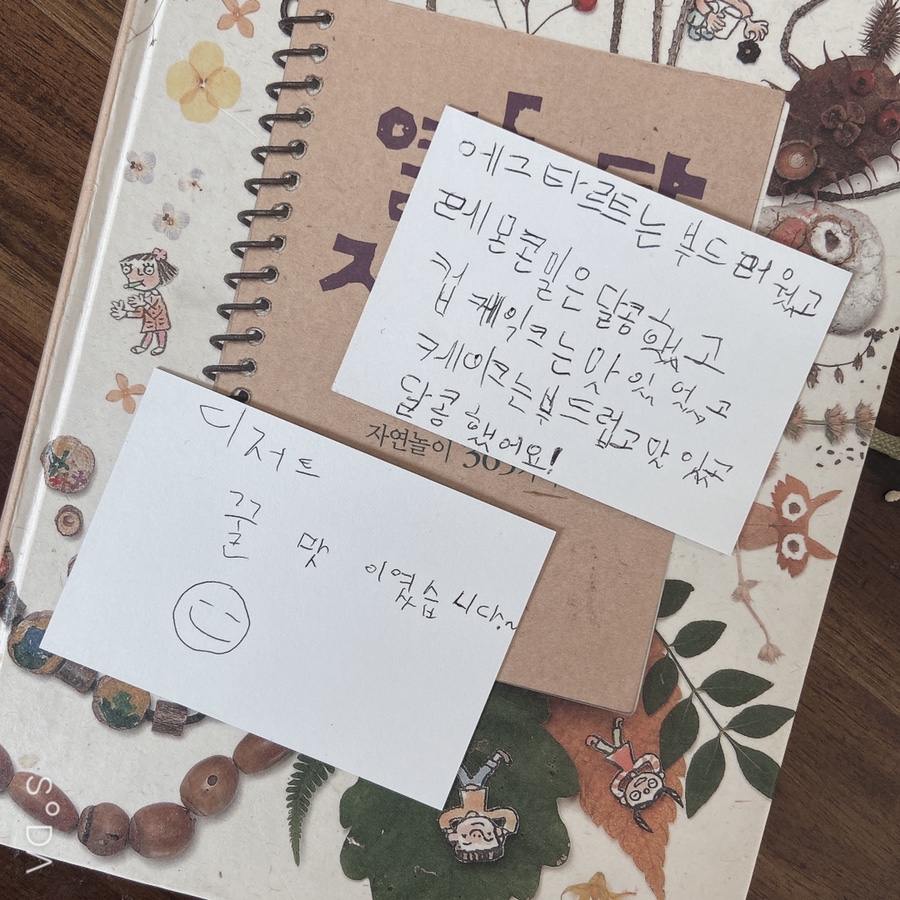 에그타르트는 부드러웠고
레몬콘밀은 달콤했고
컵케익크는 맛있었고
케이크는부드럽고맛있고
달콤했어요!
자연놀이 365
디저트
꿀 맛 이였습니다!~
SODA